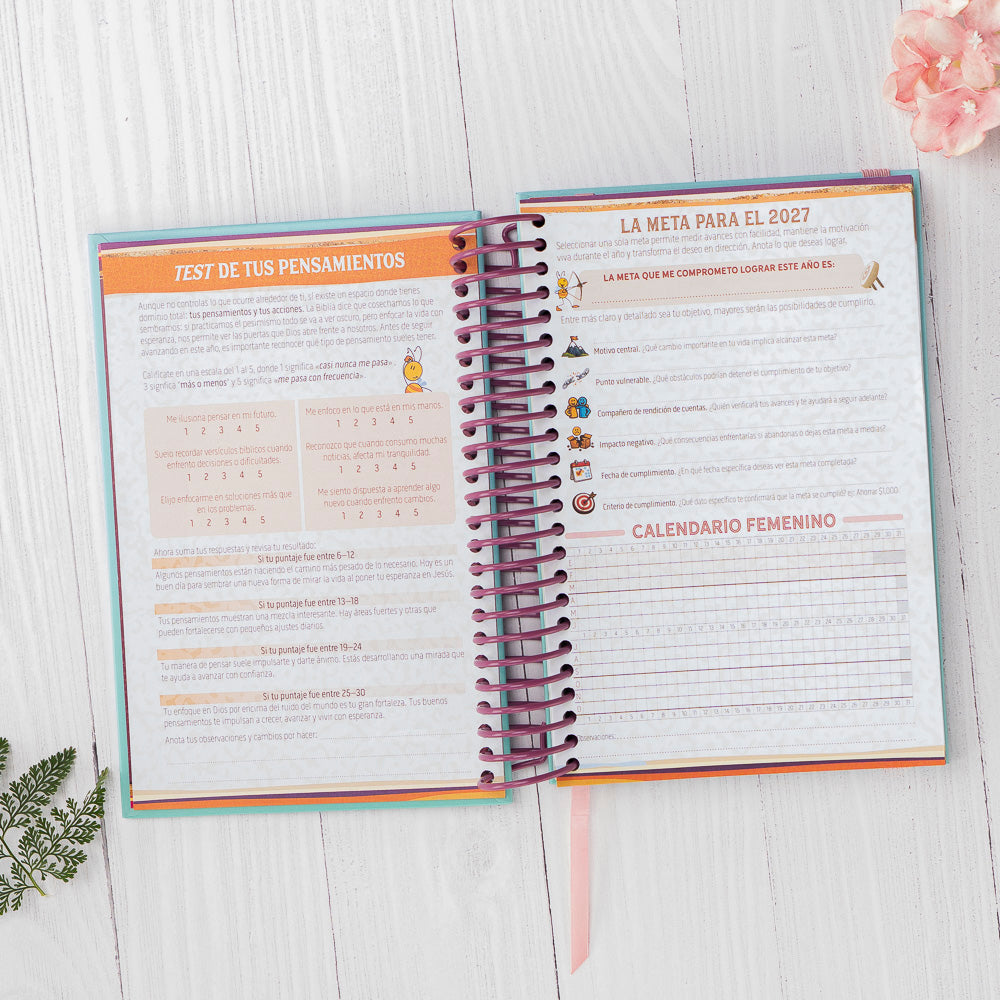 TEST DE TUS PENSAMIENTOS
Aunque no controlas lo que ocurre alrededor de ti, sí existe un espacio donde tienes
dominio total: tus pensamientos y tus acciones. La Biblia dice que cosechamos lo que
sembramos: si practicamos el pesimismo todo se va a ver oscuro, pero enfocar la vida con
esperanza, nos permite ver las puertas que Dios abre frente a nosotros. Antes de seguir
avanzando en este año, es importante reconocer qué tipo de pensamiento sueles tener.
Califícate en una escala del 1 al 5, donde 1 significa «casi nunca me pasa»,
3 significa "más o menos" y 5 significa «me pasa con frecuencia».
Me ilusiona pensar en mi futuro.
1 2 3 4 5
Suelo recordar versículos bíblicos cuando
enfrento decisiones o dificultades.
1 2 3 4 5
Elijo enfocarme en soluciones más que
en los problemas.
1 2 3 4 5
Me enfoco en lo que está en mis manos.
1 2 3 4 5
Reconozco que cuando consumo muchas
noticias, afecta mi tranquilidad.
1 2 3 4 5
Me siento dispuesta a aprender algo
nuevo cuando enfrento cambios.
1 2 3 4 5
Ahora suma tus respuestas y revisa tu resultado:
Si tu puntaje fue entre 6–12
Algunos pensamientos están haciendo el camino más pesado de lo necesario. Hoy es un
buen día para sembrar una nueva forma de mirar la vida al poner tu esperanza en Jesús.
Si tu puntaje fue entre 13–18
Tus pensamientos muestran una mezcla interesante. Hay áreas fuertes y otras que
pueden fortalecerse con pequeños ajustes diarios.
Si tu puntaje fue entre 19–24
Tu manera de pensar suele impulsarte y darte ánimo. Estás desarrollando una mirada que
te ayuda a avanzar con confianza.
Si tu puntaje fue entre 25–30
Tu enfoque en Dios por encima del ruido del mundo es tu gran fortaleza. Tus buenos
pensamientos te impulsan a crecer, avanzar y vivir con esperanza.
Anota tus observaciones y cambios por hacer:
LA META PARA EL 2027
Seleccionar una sola meta permite medir avances con facilidad, mantiene la motivación
viva durante el año y transforma el deseo en dirección. Anota lo que deseas lograr.
LA META QUE ME COMPROMETO LOGRAR ESTE AÑO ES:
Entre más claro y detallado sea tu objetivo, mayores serán las posibilidades de cumplirlo.
Motivo central. ¿Qué cambio importante en tu vida implica alcanzar esta meta?
Punto vulnerable. ¿Qué obstáculos podrían detener el cumplimiento de tu objetivo?
Compañero de rendición de cuentas. ¿Quién verificará tus avances y te ayudará a seguir adelante?
Impacto negativo. ¿Qué consecuencias enfrentarías si abandonas o dejas esta meta a medias?
Fecha de cumplimiento. ¿En qué fecha específica deseas ver esta meta completada?
Criterio de cumplimiento. ¿Qué dato específico te confirmará que la meta se cumplió? ej: Ahorrar $1,000
CALENDARIO FEMENINO
1 2 3 4 5 6 7 8 9 10 11 12 13 14 15 16 17 18 19 20 21 22 23 24 25 26 27 28 29 30 31
M
1 2 3 4 5 6 7 8 9 10 11 12 13 14 15 16 17 18 19 20 21 22 23 24 25 26 27 28 29 30 31
J
A
S
O
N
D
1 2 3 4 5 6 7 8 9 10 11 12 13 14 15 16 17 18 19 20 21 22 23 24 25 26 27 28 29 30 31
Observaciones: